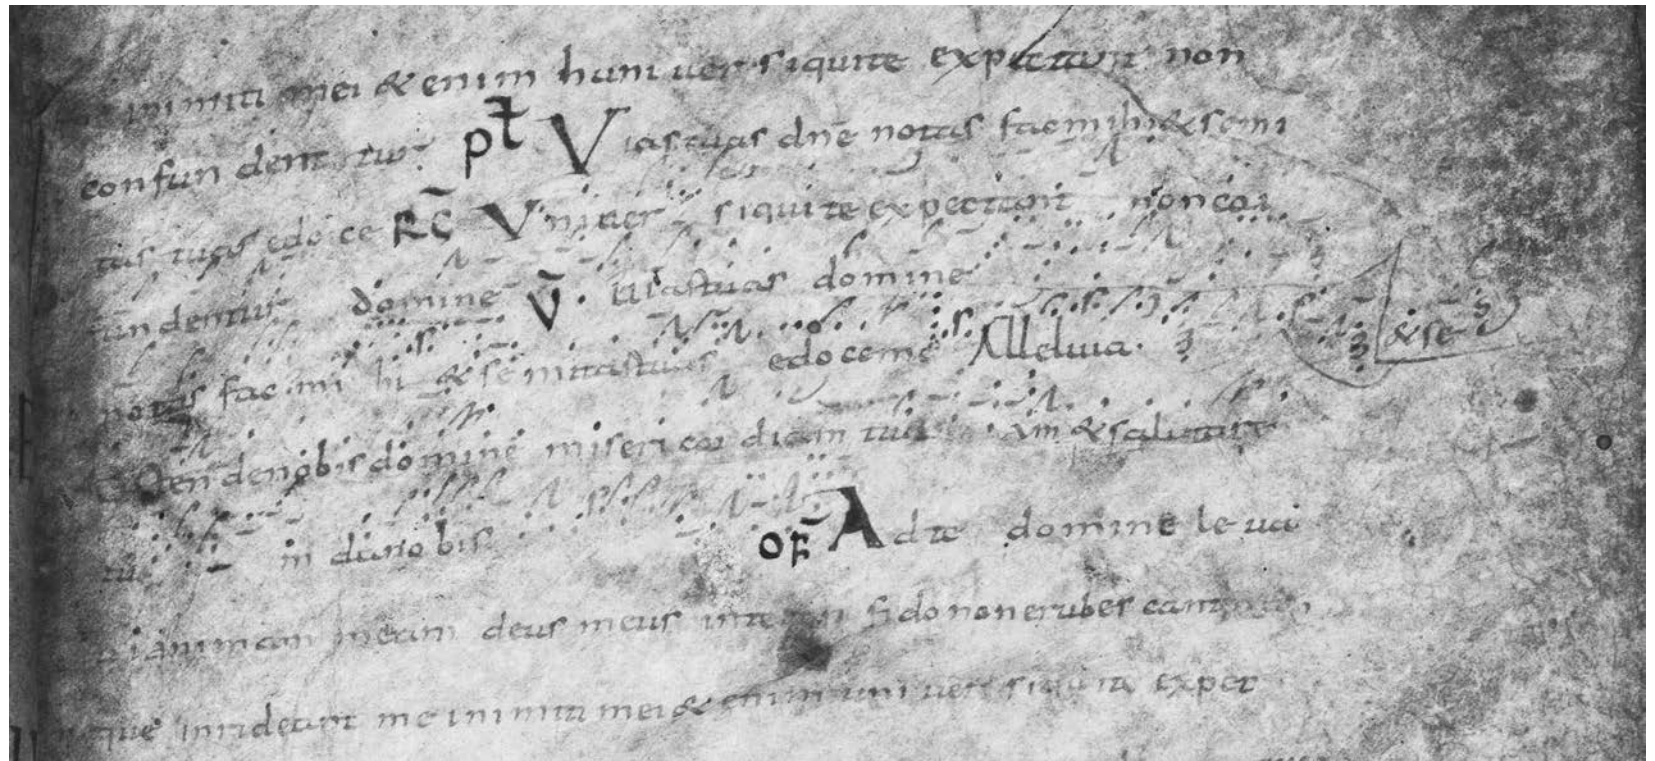 inimici mei & enim huniuersi qui te expectant non
confundentur pt Vias tuas dne notas fac mihi & semi
tas tuas edoce RC Vniuersi qui te expectant non con
fundentur domine V. Uias tuas domine
notas fac mi hi & semitas tuas edoce me Alleluia. & se
Osten de nobis domine misericordiam tuam & salutare
tu in da nobis OF Ad te domine leua
ui animam meam deus meus in te confido non erubescam
que inrideant me inimici mei & enim uniuersi qui te expec